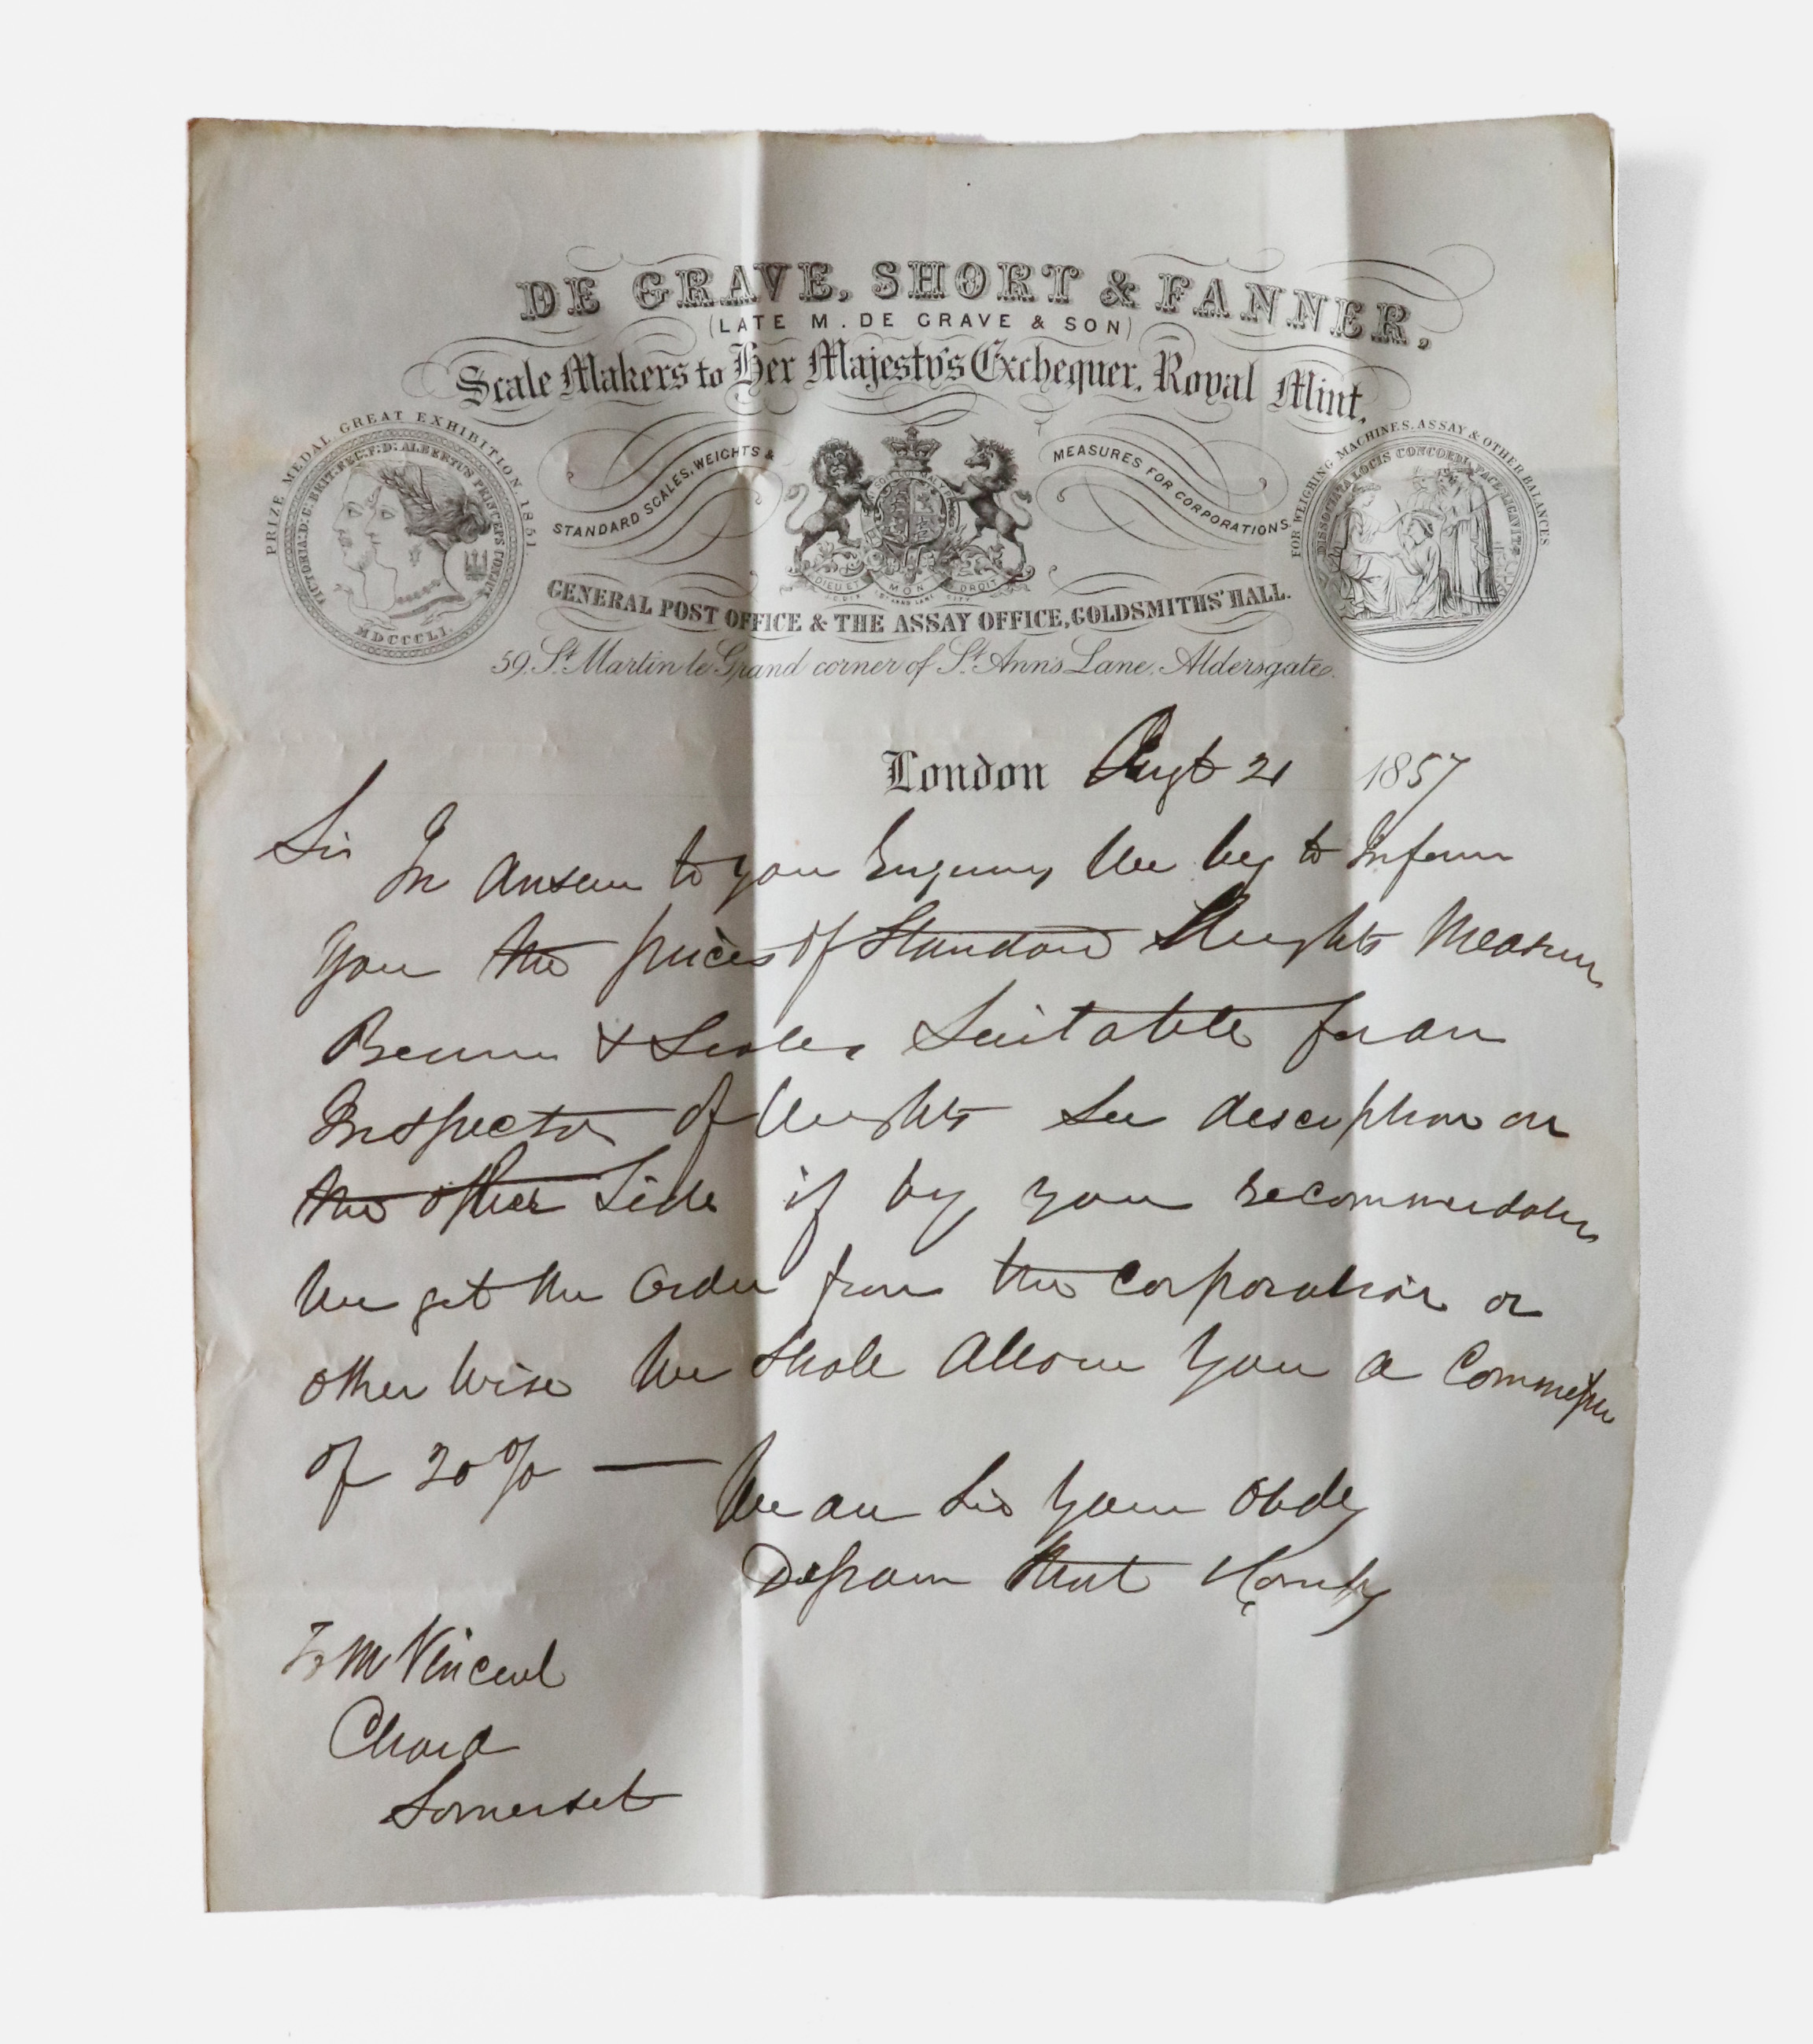 DE GRAVE, SHORT & FANNER,
(LATE M. DE GRAVE & SON)
Scale Makers to Her Majesty's Exchequer, Royal Mint,
PRIZE MEDAL GREAT EXHIBITION 1851
VICTORIA:D:G:BRIT:REG:F:D: ALBERTUS PRINCEPS CONJUX
MDCCCLI.
STANDARD SCALES, WEIGHTS &
MEASURES FOR CORPORATIONS
DIEU ET MON DROIT
FOR WEIGHING MACHINES, ASSAY & OTHER BALANCES
DISSOCIATA LOCIS CONCORDI PACE LIGAVIT
GENERAL POST OFFICE & THE ASSAY OFFICE, GOLDSMITHS' HALL.
59. St. Martin le Grand corner of St. Ann's Lane, Aldersgate.
London Augt 21 1857
Sir
In answer to your Enquiry We beg to Inform
You the prices of Standard Weights Measures
Beams & Scales Suitable for an
Inspector of Weights See description on
the other Side if by your recommendation
We get the Order from the Corporation or
other wise We Shall Allow You a Commission
of 20% —
We are Sir Your Obdt
Degrave Short & Fanner
To Mr Vincent
Chard
Somerset